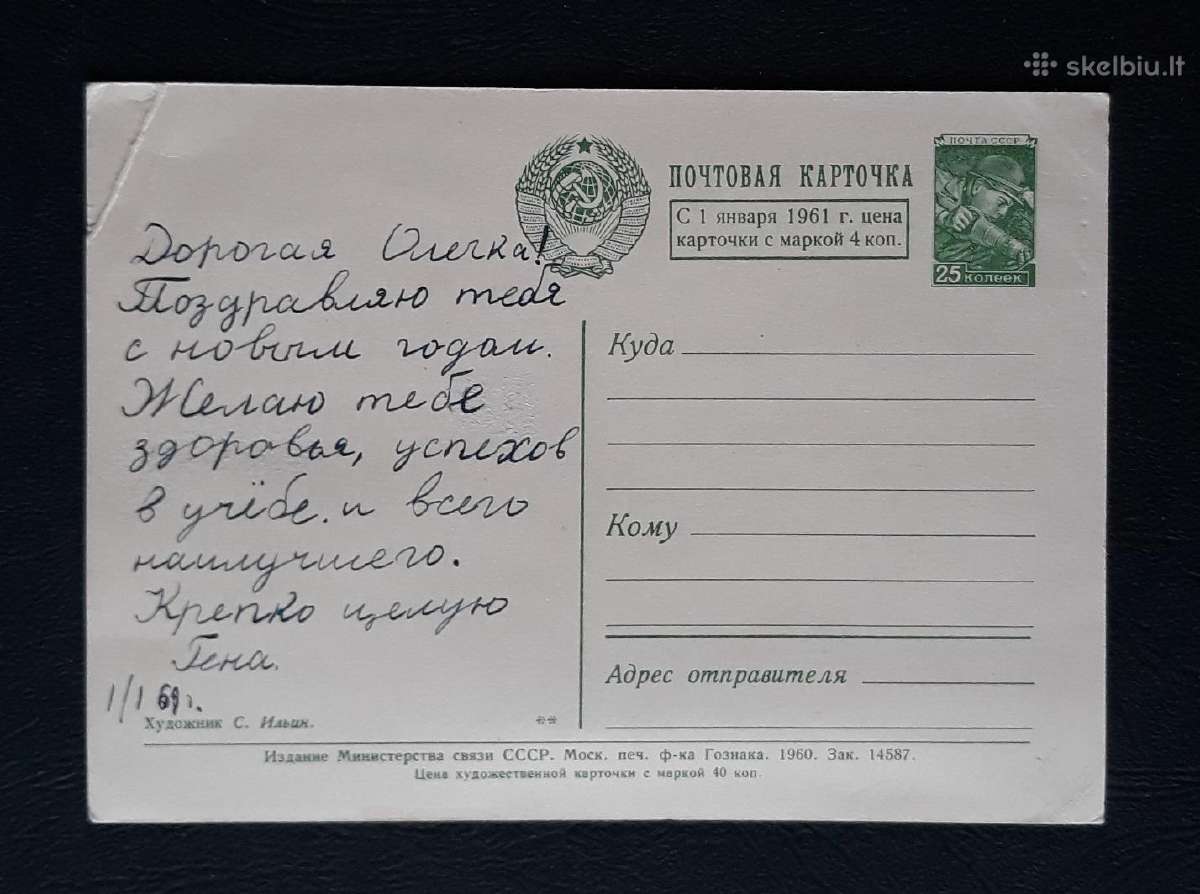 skelbiu.lt
ПОЧТОВАЯ КАРТОЧКА
С 1 января 1961 г. цена
карточки с маркой 4 коп.
ПОЧТА СССР
25 КОПЕЕК
Дорогая Олечка!
Поздравляю тебя
с новым годом.
Желаю тебе
здоровья, успехов
в учёбе и всего
наилучшего.
Крепко целую
Гена.
1/1 г.
Куда
Кому
Адрес отправителя
Художник С. Ильин.
Издание Министерства связи СССР. Моск. печ. ф-ка Гознака. 1960. Зак. 14587.
Цена художественной карточки с маркой 40 коп.